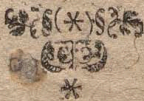 §(*)§
*